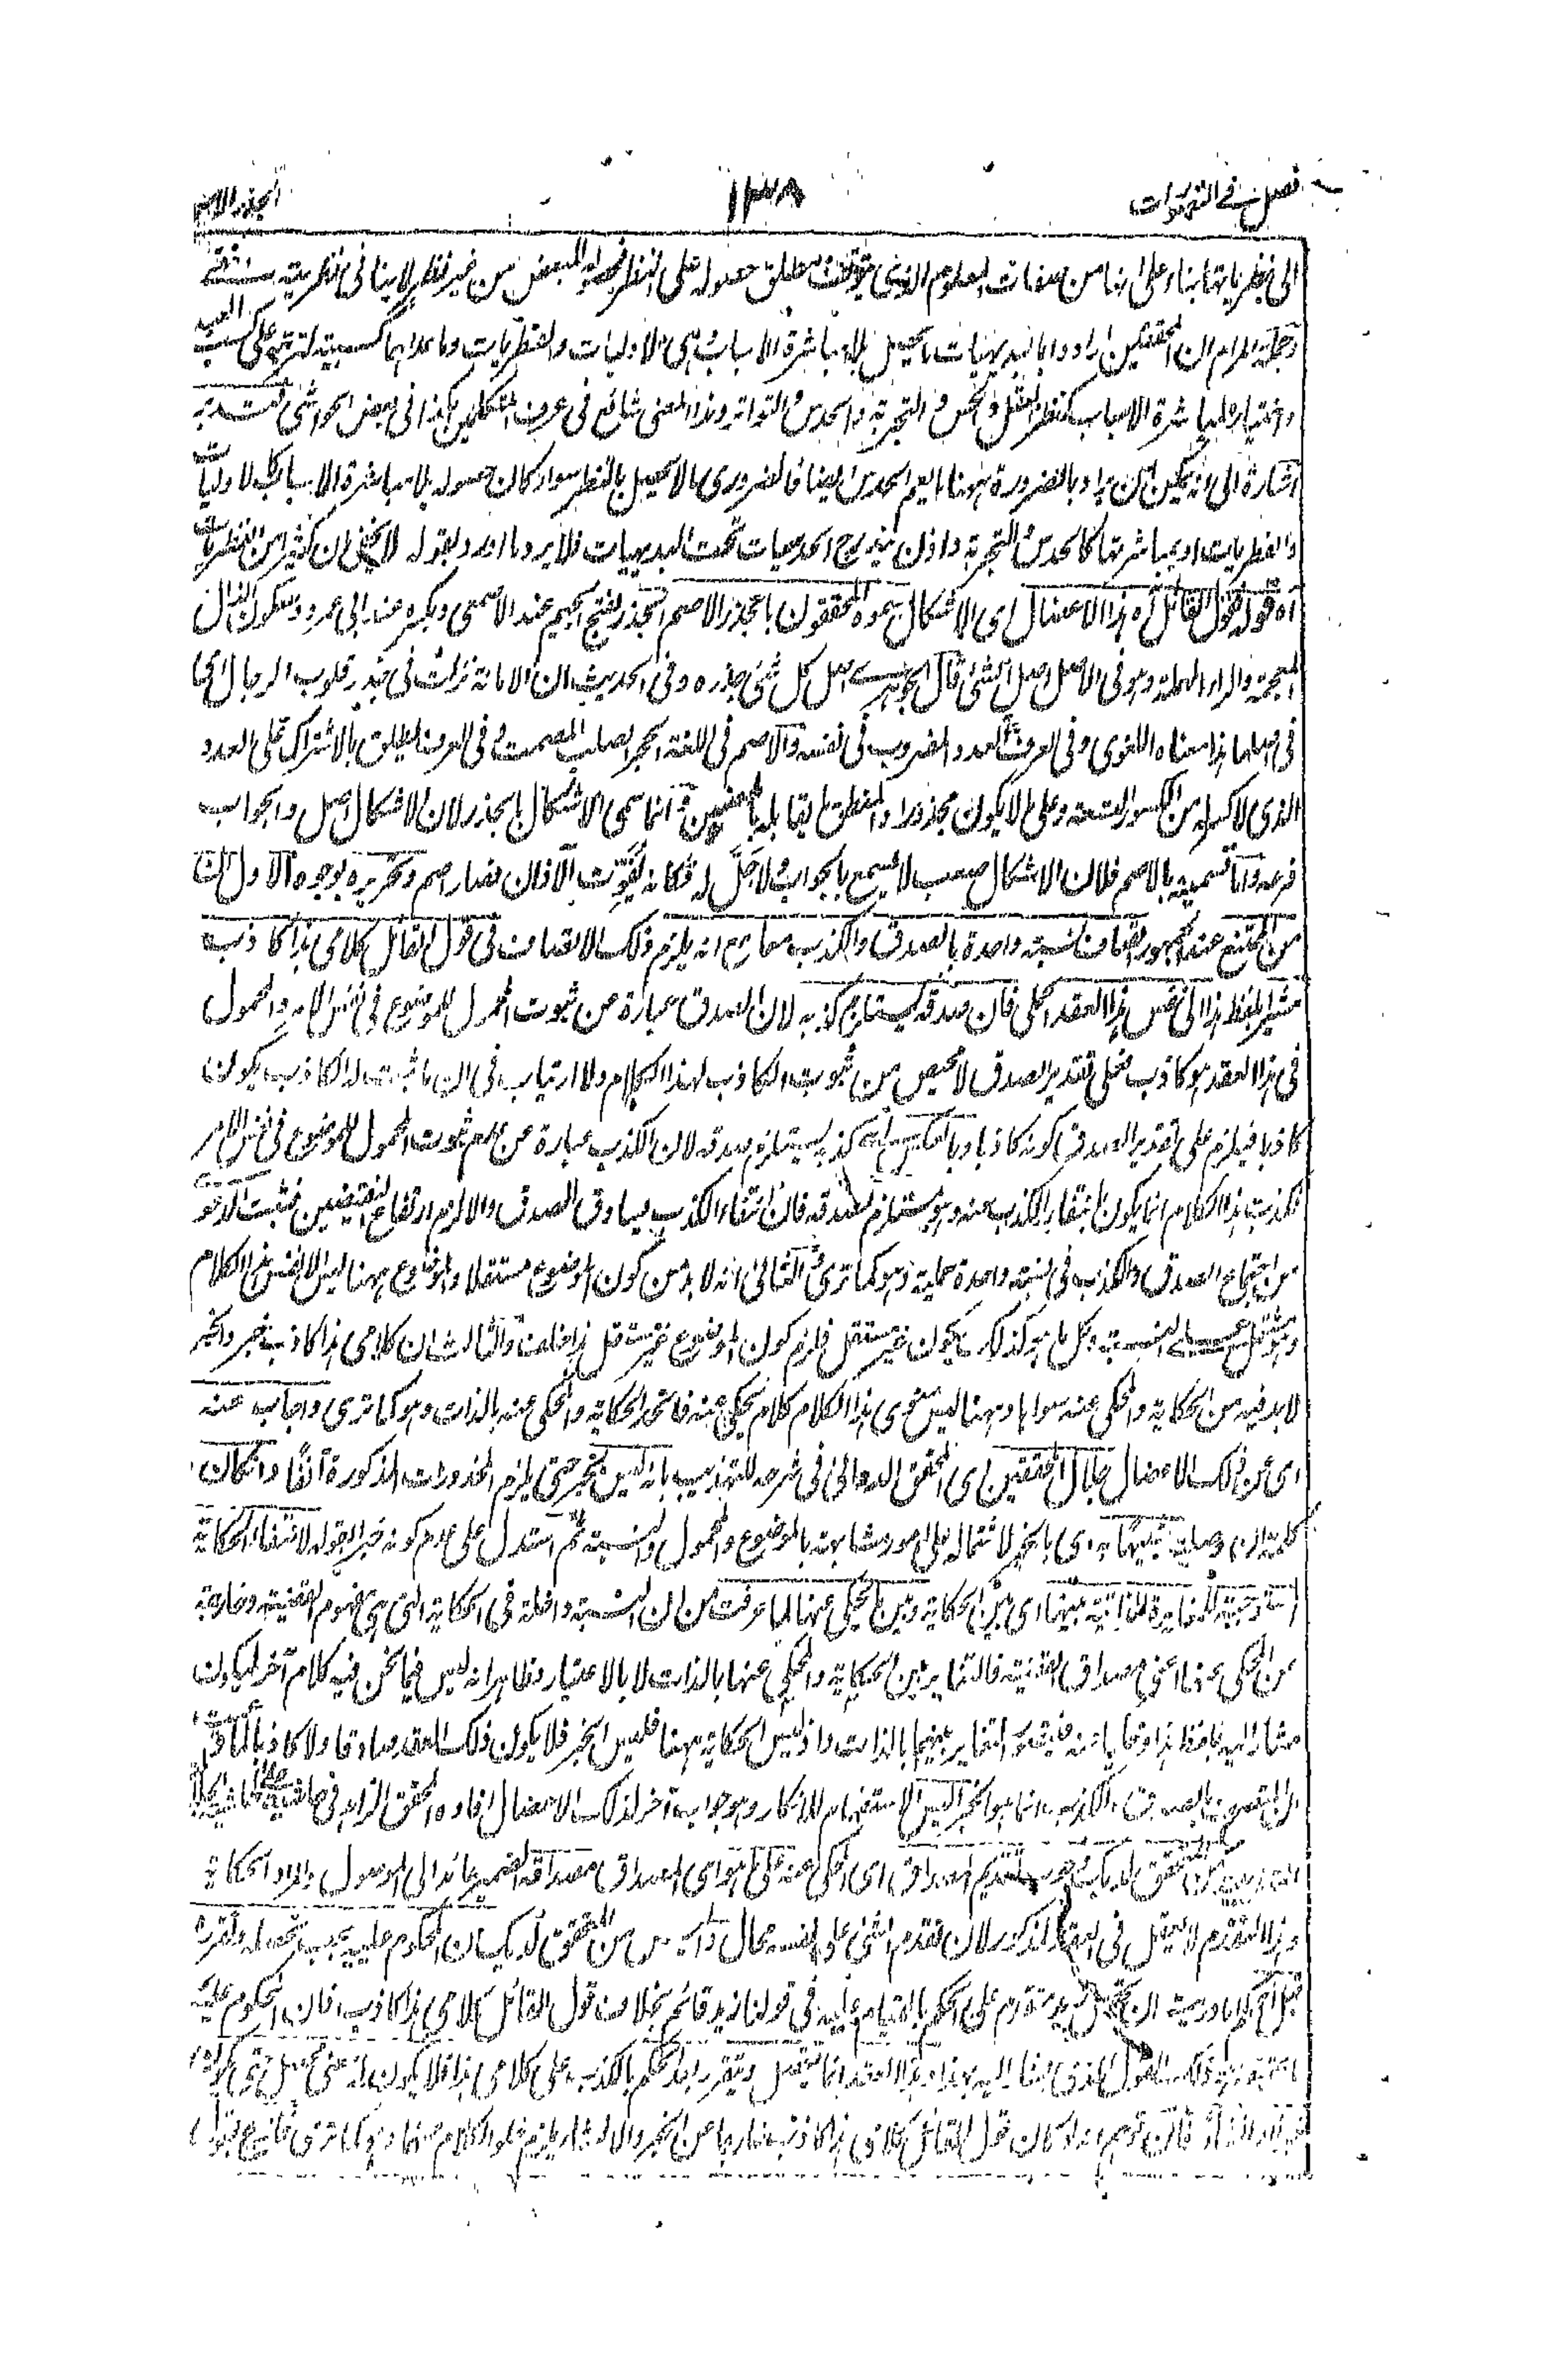 فصل في التصورات ١٣٨ الجذر الاصم
الى نظرياتها بناء على انها من صفات المعلوم الذى يتوقف مطلق حصوله على النظر فحصوله للبعض من غير نظر لا ينافى نظريته
المرام ان المحققين ارادوا بالبديهيات ما يحصل بلا مباشرة الاسباب وهى الاوليات والفطريات وما عداها كسبية لترتبه على كسب العبد
واختياره لمباشرة الاسباب كنظر العقل والحس والتجربة والحدس والتواتر وهذا المعنى شائع فى عرف المتكلمين هكذا فى بعض الحواشى
اشارة الى انه يمكن ان يراد بالضرورة ههنا ما يعم الحدس ايضا فالضرورى ما لا يحصل بالنظر سواء كان حصوله بلا مباشرة الاسباب كالاوليات
والفطريات او بمباشرتها كالحدس والتجربة واذن يندرج الحدسيات تحت البديهيات فلا يرد ما اورد بقوله لا يخفى ان كثيرا من النظريات
آه قوله قول القائل آه هذا الاعضال اى الاشكال سموه المحققون بالجذر الاصم الجذر بفتح الجيم عند الاصمعى وبكسره عند ابى عمرو وسكون الذال
المعجمة والراء المهملة وهو فى الاصل اصل الشئ قال الجوهرى اصل كل شئ جذره وفى الحديث ان الامانة نزلت فى جذر قلوب الرجال اى
فى اصلها هذا معناه اللغوى وفى العرف العدد المضروب فى نفسه والاصم فى اللغة الحجر الصلب المصمت وفى العرف يطلق بالاشتراك على العدد
الذى لا كسر له من الكسور التسعة وعلى ما لا يكون مجذورا والمنطق يقابله بالمعنيين وانما سمى الاشكال بالجذر لان الاشكال اصل والجواب
فرعه واما تسميته بالاصم فلان الاشكال صعب لا يسمع بالجواب ولا حل له فكانه الآذان فصار اصم وتحريره بوجوه الاول
من الممتنع عند الجمهور اتصاف نسبة واحدة بالصدق والكذب معا مع انه يلزم ذلك الاتصاف فى قول القائل كلامى هذا كاذب
مشيرا بلفظ هذا الى نفس هذا العقد الحملى فان صدقه يستلزم كذبه لان الصدق عبارة عن ثبوت المحمول للموضوع فى نفس الامر والمحمول
فى هذا العقد هو كاذب فعلى تقدير الصدق لا محيص من ثبوت الكاذب لهذا الكلام ولا ارتياب فى ان ما ثبت له الكاذب يكون
كاذبا فيلزم على تقدير الصدق كونه كاذبا وبالعكس اى كذبه يستلزم صدقه لان الكذب عبارة عن عدم ثبوت المحمول للموضوع فى نفس الامر
فكذب هذا الكلام انما يكون بانتفاء الكذب عنه وهو يستلزم لصدقه فان انتفاء الكذب يساوق الصدق والا لزم ارتفاع النقيضين فثبت
من اجتماع الصدق والكذب فى نسبة واحدة حملية وهو كما ترى والثانى انه لا بد من كون الموضوع مستقلا والموضوع ههنا ليس الا نفس هذا الكلام
وهو مشتمل على النسبة وكل ما هو كذلك يكون غير مستقل فلزم كون الموضوع غير مستقل هذا خلف والثالث ان كلامى هذا كاذب خبر والخبر
لا بد فيه من الحكاية والمحكى عنه سواها وههنا ليس سوى هذا الكلام كلام يحكى عنه فاتحد الحكاية والمحكى عنه بالذات وهو كما ترى واجاب عنه
اى عن ذلك الاعضال جلال المحققين اى المحقق الدوانى فى شرحه للتهذيب بانه ليس بخبر حتى يلزم المحذورات المذكورة آنفا وان كان
كلمة ان وصلية شبيها به اى بالخبر لاشتماله على امور مشابهة بالموضوع والمحمول والنسبة ثم استدل على عدم كونه خبرا بقوله لانتفاء الحكاية
المغايرة الذاتية بينهما اى بين الحكاية وبين المحكى عنها لما عرفت من ان النسبة داخلة فى الحكاية التى هى مفهوم القضية وخارجة
عن المحكى عنها اعنى مصداق القضية فالتغاير بين الحكاية والمحكى عنها بالذات لا بالاعتبار وظاهر انه ليس فيما نحن فيه كلام آخر ليكون
مشارا اليه بلفظ هذا ومحكيا عنه التغاير بينهما بالذات واذ ليس الحكاية ههنا فليس الخبر فلا يكون ذلك العقد صادقا ولا كاذبا
المتصف بالصدق والكذب انما هو الخبر اليس الاستفهام للانكار وهو جواب آخر لذلك الاعضال افاده المحقق الزاهد فى حاشية
من المحقق تقديم المصداق اى المحكى عنه على ما هو اى المصداق مصداقه الضمير عائد الى الموصول والمراد الحكاية
وهذا التقدم لا يعقل فى العقد المذكور لان تقدم الشئ على نفسه محال واليس من المحقق لديك ان المحكوم عليه يجب تحصله وتقرره
قبل الحكم ان تحصل زيد متقدم على الحكم بالقيام عليه فى قولنا زيد قائم بخلاف قول القائل كلامى هذا كاذب فان المحكوم عليه
ذلك القول الذى اليه بهذا وهذا العقد انما يتحصل ويتقرر بعد الحكم بالكذب على كلامى هذا فلا يكون
فان توهم انه لو كان قول القائل كلامى هذا كاذب خارجا عن الخبر والانشاء يلزم خلو الكلام عنهما وهو كما ترى